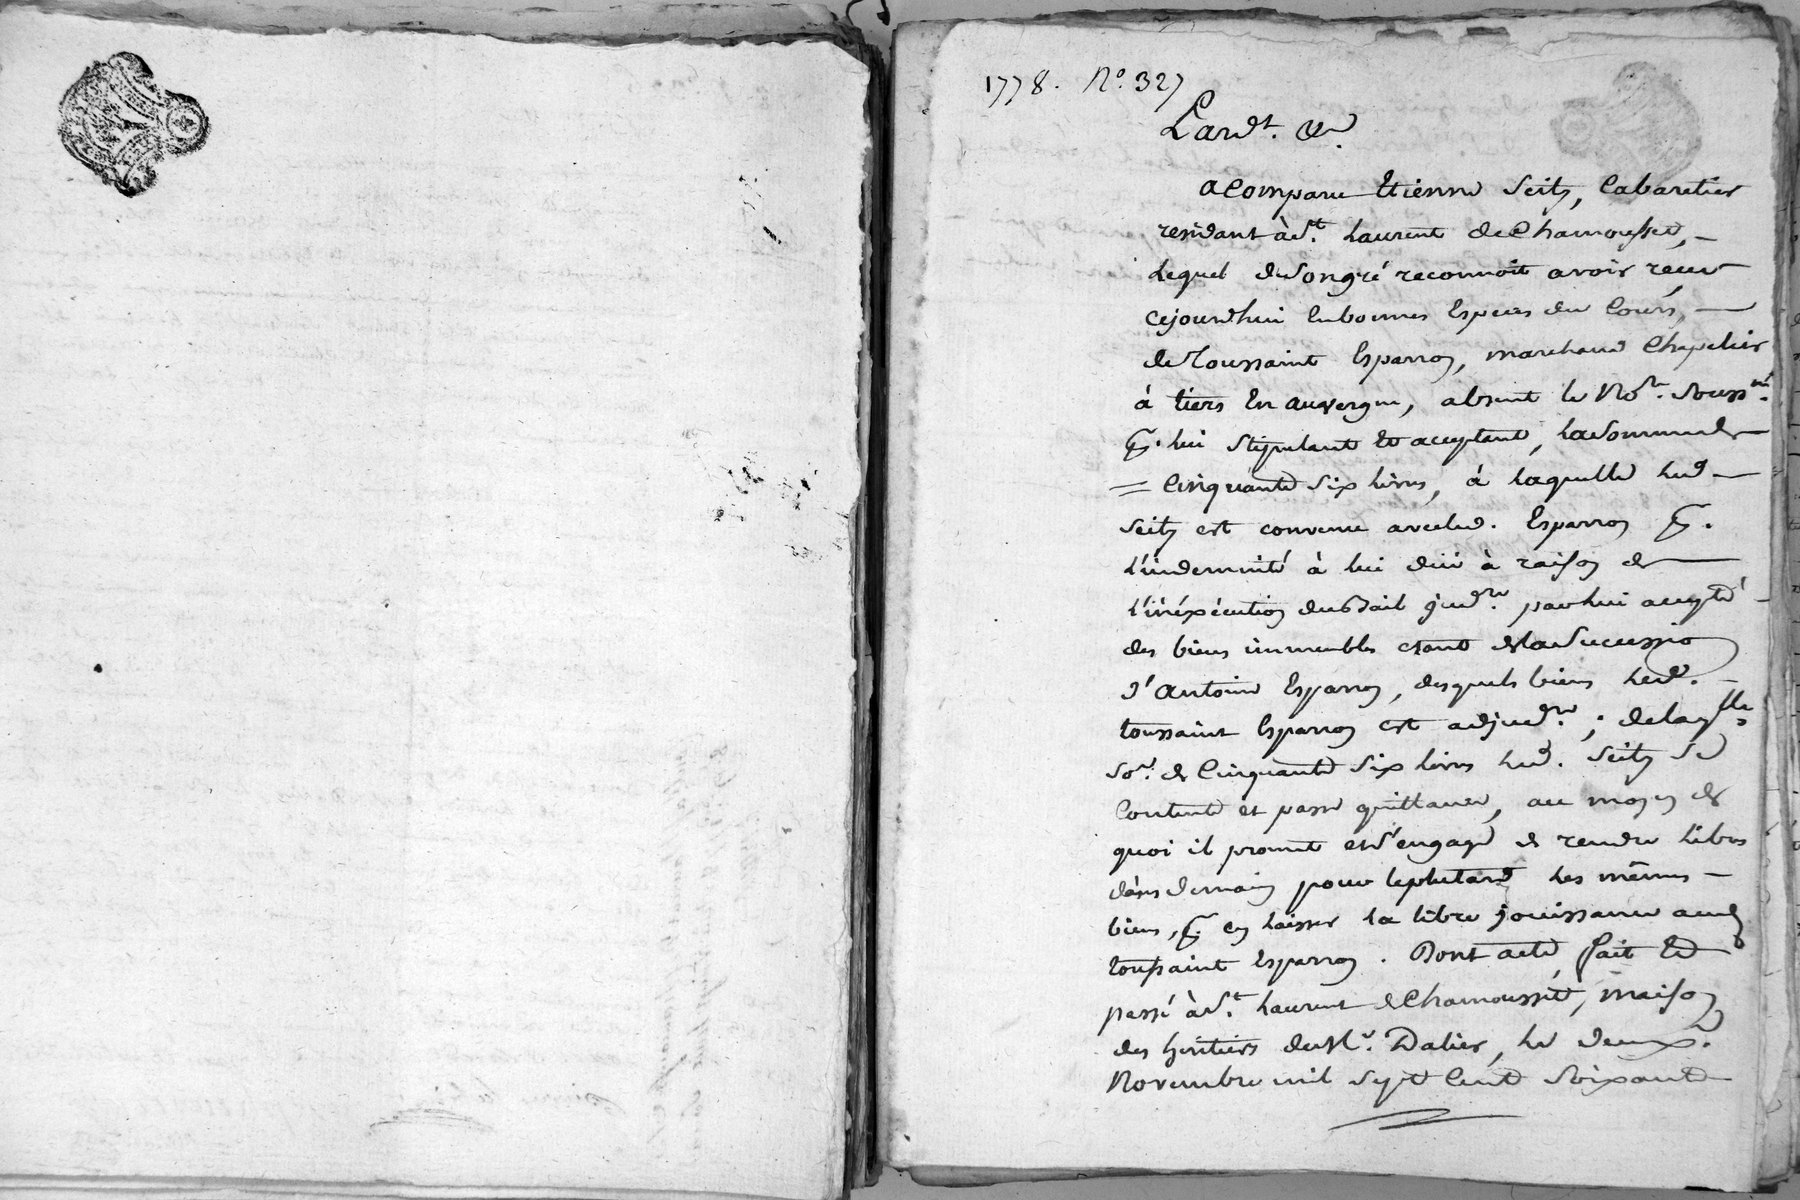 1778. N.o 327
Pardt. &a.
a Comparu Etienne Seitz, Cabaretier
residant à St. Laurent de Chamousset, —
Lequel de son gré reconnoît avoir receu
cejourdhui En bonnes Especes du Cours, —
de Toussaint Esparron, marchand Chapelier
à tiers En auvergne, absent le Nore. souss.né
pr. lui stipulant et acceptant, la somme de —
= Cinquante six Livres, à laquelle led —
Seitz est convenu avec led. Esparron pr.
L'indemnité à lui düe à raison de —
L'inéxécution du Bail judre. par lui accepté —
des biens immeubles etant de la Succession
d'Antoine Esparron, desquels biens led. —
toussaint Esparron est adjudre. ; de laqlle.
So.e de Cinquante Six Livres led. Seitz se
Contente et passe quittance, au moyen de
quoi il promet et s'engage de rendre libres
dans demain pour le plutard les mêmes —
biens, pr. en laisser la libre jouissance aud
toussaint Esparron. Dont acte, fait et
passé à St. Laurent de Chamousset, maison
des heritiers du Sr. Dalier, le deux.
Novembre mil sept Cent Soixante —